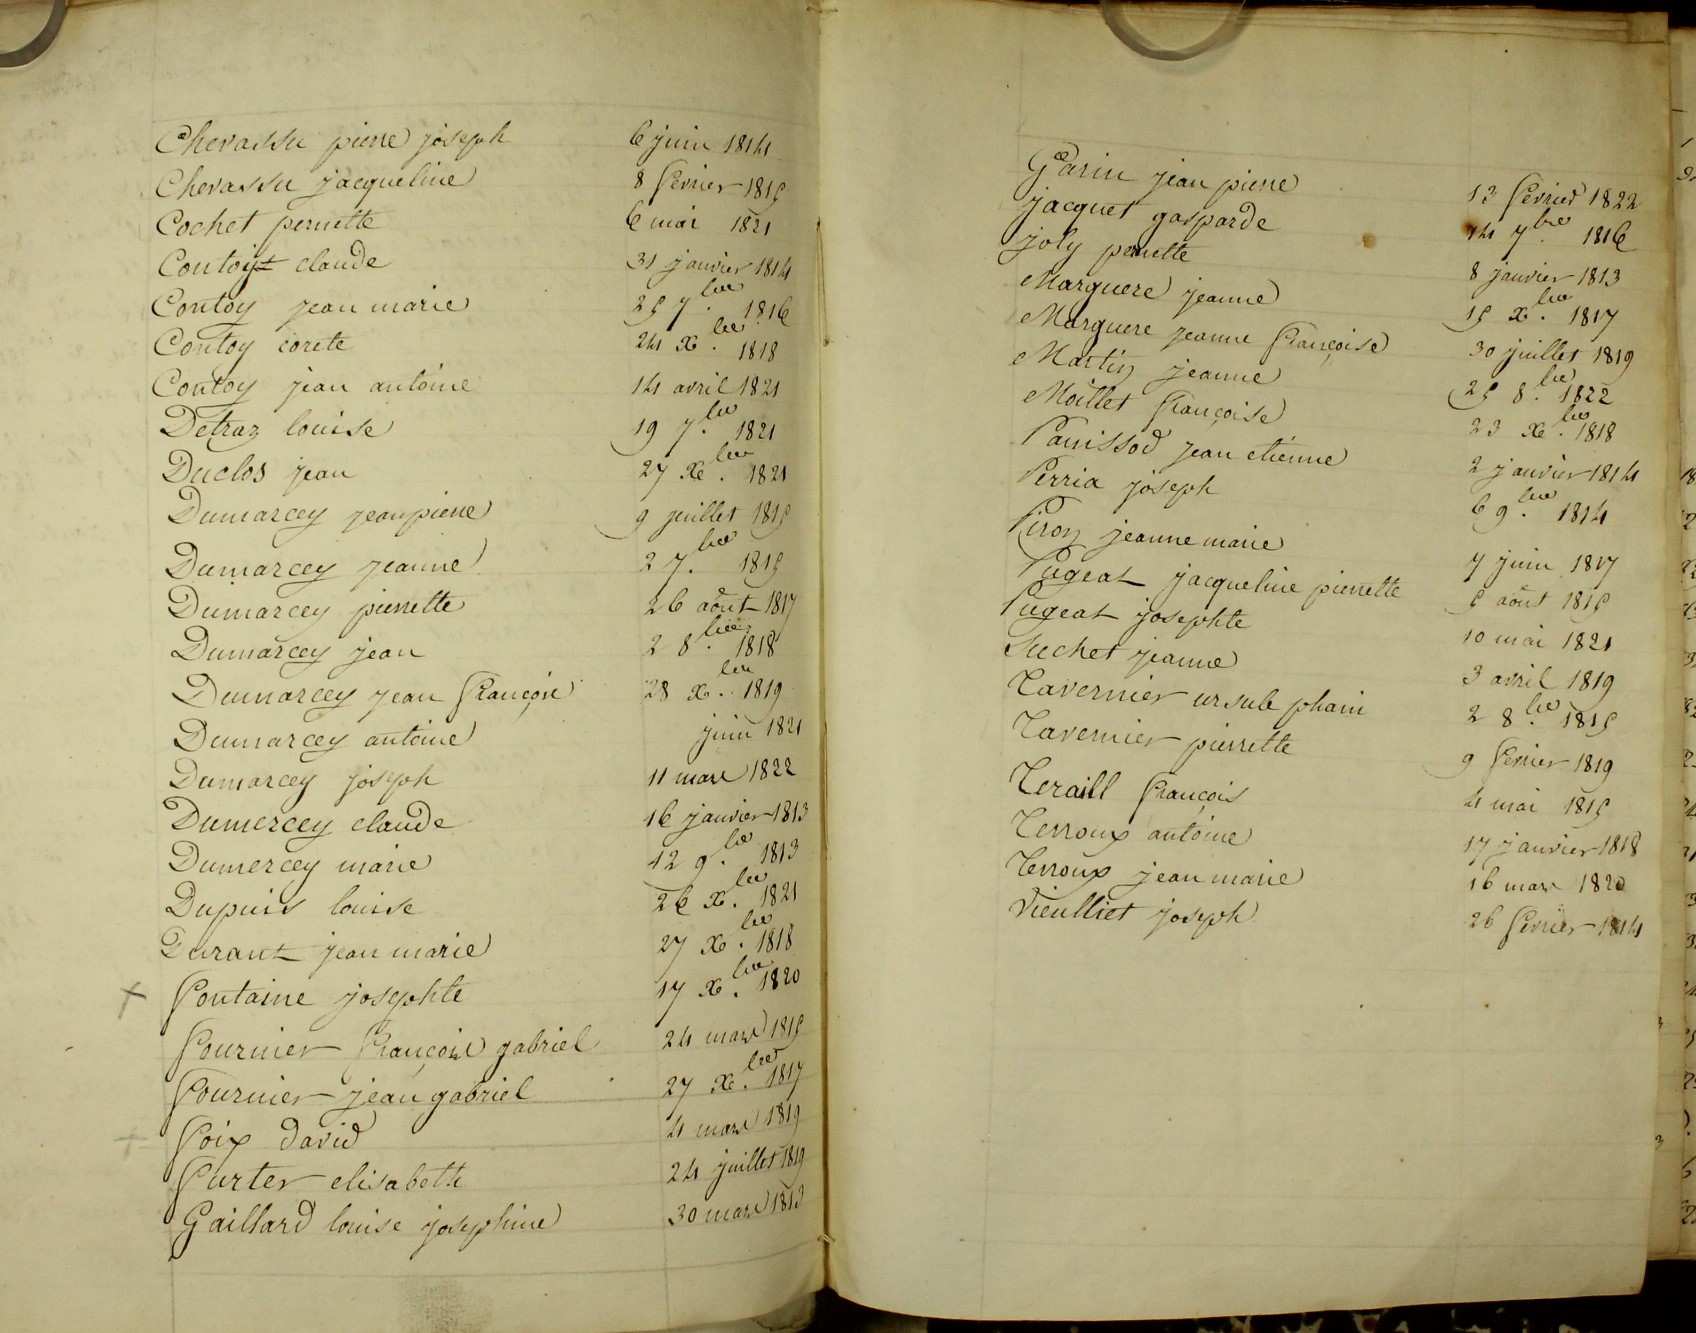 Chevassu pierre joseph 6 juin 1814
Chevassu jacqueline 8 fevrier 1815
Cochet pernette 6 mai 1821
Contoyt claude 31 janvier 1814
Contoy jean marie 25 7.bre 1816
Contoy corete 24 xe.bre 1818
Contoy jean antoine 14 avril 1821
Detraz louise 19 7.bre 1821
Duclos jean 27 xe.bre 1821
Dumarcey jean pierre 9 juillet 1815
Dumarcey jeanne 2 7.bre 1815
Dumarcey pierrette 26 août 1817
Dumarcey jean 2 8.bre 1818
Dumarcey jean françois 28 xe.bre 1819
Dumarcey antoine juin 1821
Dumarcey joseph 11 mars 1822
Dumercey claude 16 janvier 1813
Dumercey marie 12 9.bre 1813
Dupuis louise 26 xe.bre 1821
Durant jean marie 27 xe.bre 1818
+ fontaine josephte 17 xe.bre 1820
fournier françois gabriel 24 mars 1815
fournier jean gabriel 27 xe.bre 1817
+ foix david 4 mars 1819
furter elisabeth 24 juillet 1819
Gaillard louise josephine 30 mars 1813
Garin jean pierre 13 fevrier 1822
jacquet gasparde 14 7.bre 1816
joly pernette 8 janvier 1813
Marguere jeanne 15 xe.bre 1817
Marguere jeanne françoise 30 juillet 1819
Martin jeanne 25 8.bre 1822
Moillet françoise 23 xe.bre 1818
Panissod jean etienne 2 janvier 1814
Perria joseph 6 9.bre 1814
Piron jeanne marie 7 juin 1817
Pugeat jacqueline pierrette 5 août 1815
Pugeat josephte 10 mai 1821
Suchet jeanne 3 avril 1819
Tavernier ursule phani 2 8.bre 1815
Tavernier pierrette 9 fevrier 1819
Teraill françois 4 mai 1815
Terroux antoine 17 janvier 1818
Terroux jean marie 16 mars 1820
Vieulliet joseph 26 fevrier 1814